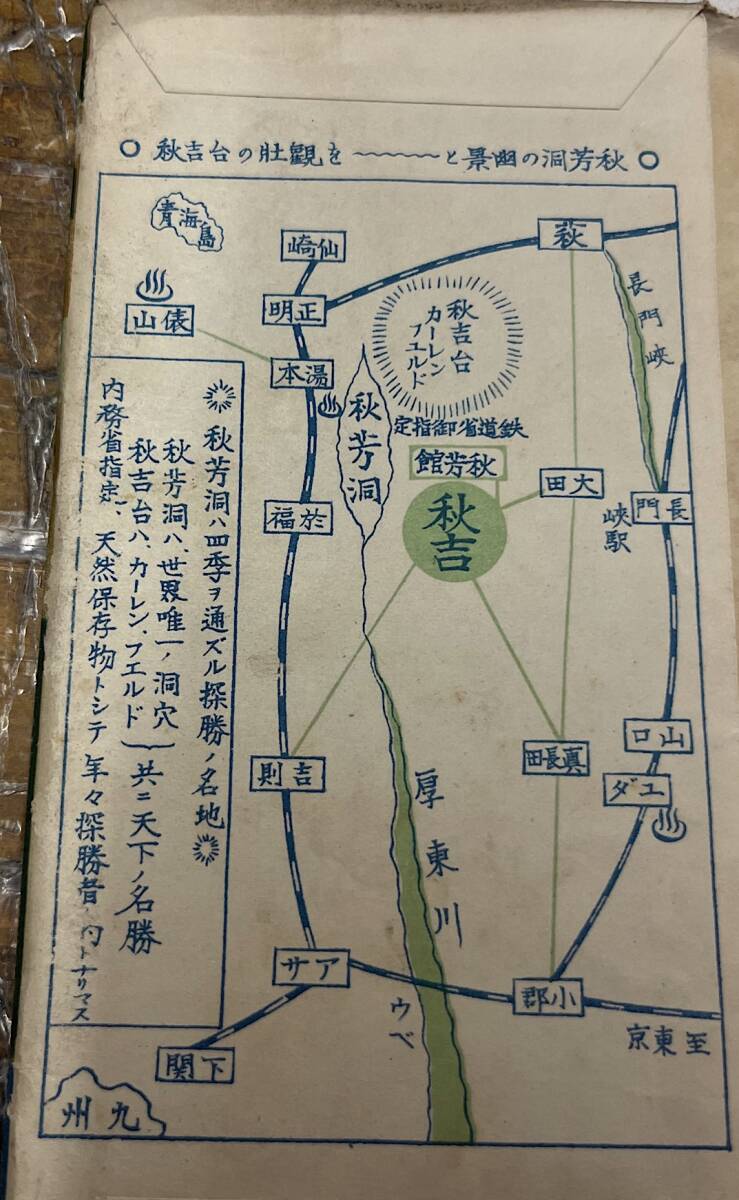 ○秋芳洞の幽景と〜〜〜秋吉台の壯觀を○
青海島
仙崎
萩
正明
俵山
湯本
長門峡
秋吉台
カーレン
フエルド
秋芳洞
鉄道省御指定
秋芳館
秋吉
大田
於福
長門
峡駅
吉則
真長田
山口
ユダ
厚東川
アサ
小郡
ウベ
至東京
下関
九州
秋芳洞ハ四季ヲ通ズル探勝ノ名地
秋芳洞ハ、世界唯一ノ洞穴
秋吉台ハ、カーレン、フエルド
共ニ天下ノ名勝
内務省指定、天然保存物トシテ年々探勝者ノ的トナリマス